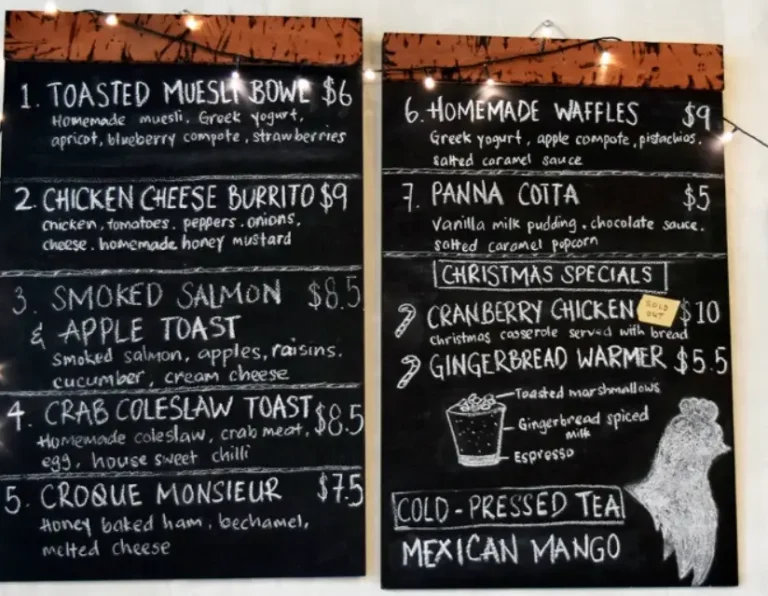 1. TOASTED MUESLI BOWL $6
Homemade muesli. Greek yogurt,
apricot, blueberry compote, strawberries
2. CHICKEN CHEESE BURRITO $9
chicken, tomatoes. peppers. onions.
cheese. homemade honey mustard
3. SMOKED SALMON $8.5
& APPLE TOAST
smoked salmon, apples, raisins.
cucumber, cream cheese
4. CRAB COLESLAW TOAST $8.5
Homemade coleslaw, crab meat,
egg, house sweet chilli
5. CROQUE MONSIEUR $7.5
Honey baked ham, bechamel,
melted cheese
6. HOMEMADE WAFFLES $9
Greek yogurt, apple compote, pistachios,
salted caramel sauce
7. PANNA COTTA $5
Vanilla milk pudding, chocolate sauce.
salted caramel popcorn
CHRISTMAS SPECIALS
CRANBERRY CHICKEN SOLD OUT $10
christmas casserole served with bread
GINGERBREAD WARMER $5.5
Toasted marshmallows
Gingerbread spiced
milk
Espresso
COLD-PRESSED TEA
MEXICAN MANGO